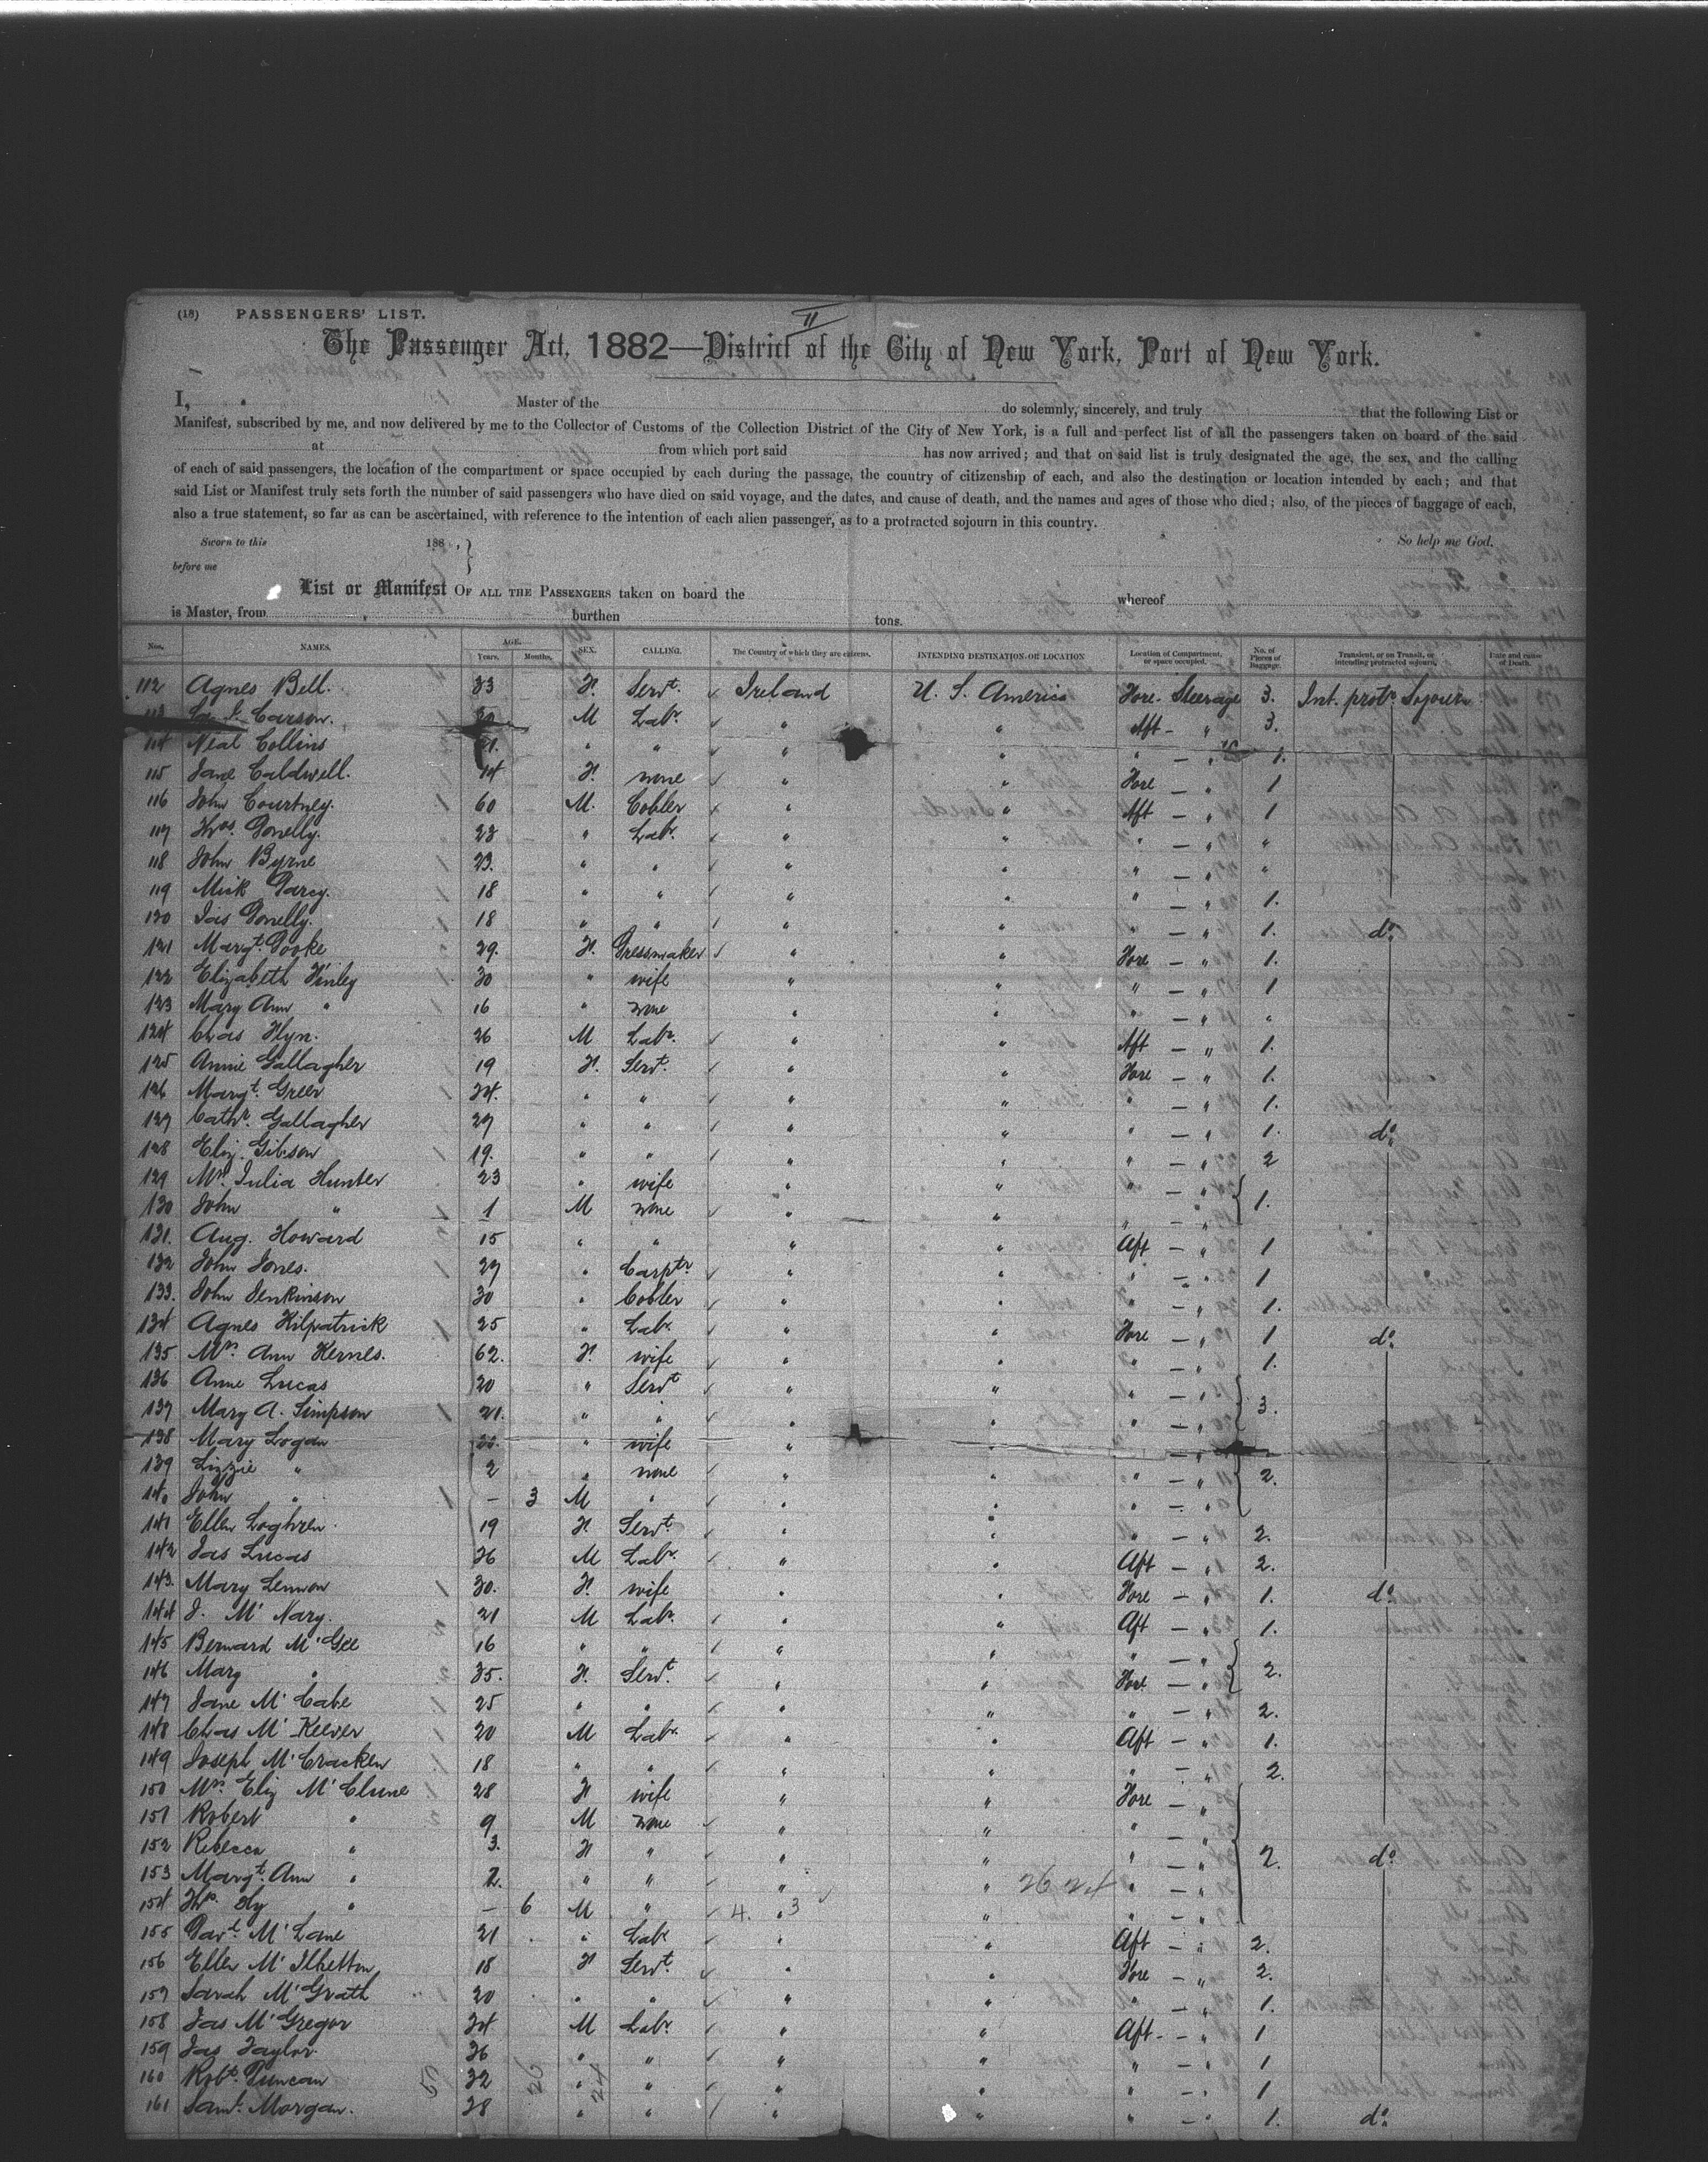 (18) PASSENGERS' LIST.
II
The Passenger Act, 1882—District of the City of New York, Port of New York.
I, Master of the do solemnly, sincerely, and truly that the following List or
Manifest, subscribed by me, and now delivered by me to the Collector of Customs of the Collection District of the City of New York, is a full and perfect list of all the passengers taken on board of the said
at from which port said has now arrived; and that on said list is truly designated the age, the sex, and the calling
of each of said passengers, the location of the compartment or space occupied by each during the passage, the country of citizenship of each, and also the destination or location intended by each; and that
said List or Manifest truly sets forth the number of said passengers who have died on said voyage, and the dates, and cause of death, and the names and ages of those who died; also, of the pieces of baggage of each,
also a true statement, so far as can be ascertained, with reference to the intention of each alien passenger, as to a protracted sojourn in this country.
Sworn to this 188 , } So help me God.
before me
List or Manifest OF ALL THE PASSENGERS taken on board the whereof
is Master, from burthen tons.
Nos. NAMES. AGE. Years. Months. SEX. CALLING. The Country of which they are citizens. INTENDING DESTINATION OR LOCATION Location of Compartment, or space occupied. No. of Pieces of Baggage. Transient, or on Transit, or intending protracted sojourn. Date and cause of Death.
112 Agnes Bell. 33 F. Servt. Ireland U. S. America Fore Steerage 3. Int. protr. Sojourn
113 Carson. M Labr. " " Aft - " 3.
114 Neal Collins 21. " " " " " - " 1.
115 Jane Caldwell. 14 F. none " " Fore - " 1
116 John Courtney. 60 M. Cobler " " Aft - " 1
117 Thos. Donelly. 23 " Labr. " " " - " "
118 John Byrne 23. " " " " " - " "
119 Mick Darcy. 18 " " " " " - " 1.
120 Jas Donelly. 18 " " " " " - " 1. do.
121 Margt. Cooke 29. F. Dressmaker " " Fore - " 1.
122 Elizabeth Finley 30 " wife " " " - " 1
123 Mary Ann " 16 " none " " " - " "
124 Chas Flyn. 26 M Labr. " " Aft - " 1.
125 Annie Gallagher 19 F. Servt. " " Fore - " 1.
126 Margt. Greer 24. " " " " " - " 1.
127 Cathr. Gallagher 27 " " " " " - " 1. do.
128 Eliz. Gibson 19. " " " " " - " 2
129 Mrs. Julia Hunter 23 " wife " " " - " } 1.
130 John " 1 M none " " " - "
131. Aug. Howard 15 " " " " Aft - " 1
132 John Jones. 27 " Carptr. " " " - " 1
133. John Jenkinson 30 " Cobler " " " - " 1.
134 Agnes Kilpatrick 25 " Labr. " " Fore - " 1 do.
135 Mrs. Ann Kernes. 62. F. wife " " " - " 1.
136 Anne Lucas 20 " Servt " " " - " } 3.
137 Mary A. Simpson 21. " " " " " - "
138 Mary Logan " wife " " " - "
139 Lizzie " 2 " none " " " - " } 2.
140 John " - 3 M " " " " - "
141 Ellen Loghren. 19 F Servt. " " " - " 2.
142 Jas Lucas 26 M Labr. " " Aft - " 2.
143. Mary Lennon 30. F. wife " " Fore - " 1. do.
144 J. Mc Nary. 21 M Labr. " " Aft - " 1.
145 Bernard McGee 16 " " " " " - " } 2.
146 Mary " 35. F. Servt. " " Fore - "
147 Jane McCabe 25 " " " " " - " 2.
148 Chas McKeever 20 M Labr. " " Aft - " 1.
149 Joseph McCracken 18 " " " " " - " 2.
150 Mrs. Eliz McClune 28 F wife " " Fore - "
151 Robert " 9 M none " " " - "
152 Rebecca " 3. F " " " " - " } 2. do.
153 Margt. Ann " 2. " " " " 26 24 " - "
154 Hy " - 6 M " 4. " 3 " " - "
155 Davd. McLane 21 " Labr " " Aft - " 2.
156 Ellen 18 F Servt. " " Fore - " 2.
157 Sarah McGrath 20 " " " " " - " 1.
158 Jas McGregor 24 M Labr. " " Aft - " 1
159 Jas Taylor. 36 " " " " " - " 1
160 Robt. Duncan 32 " " " " " - " 1
161 Saml. Morgan. 28 " " " " " - " 1. do.
50 26 24